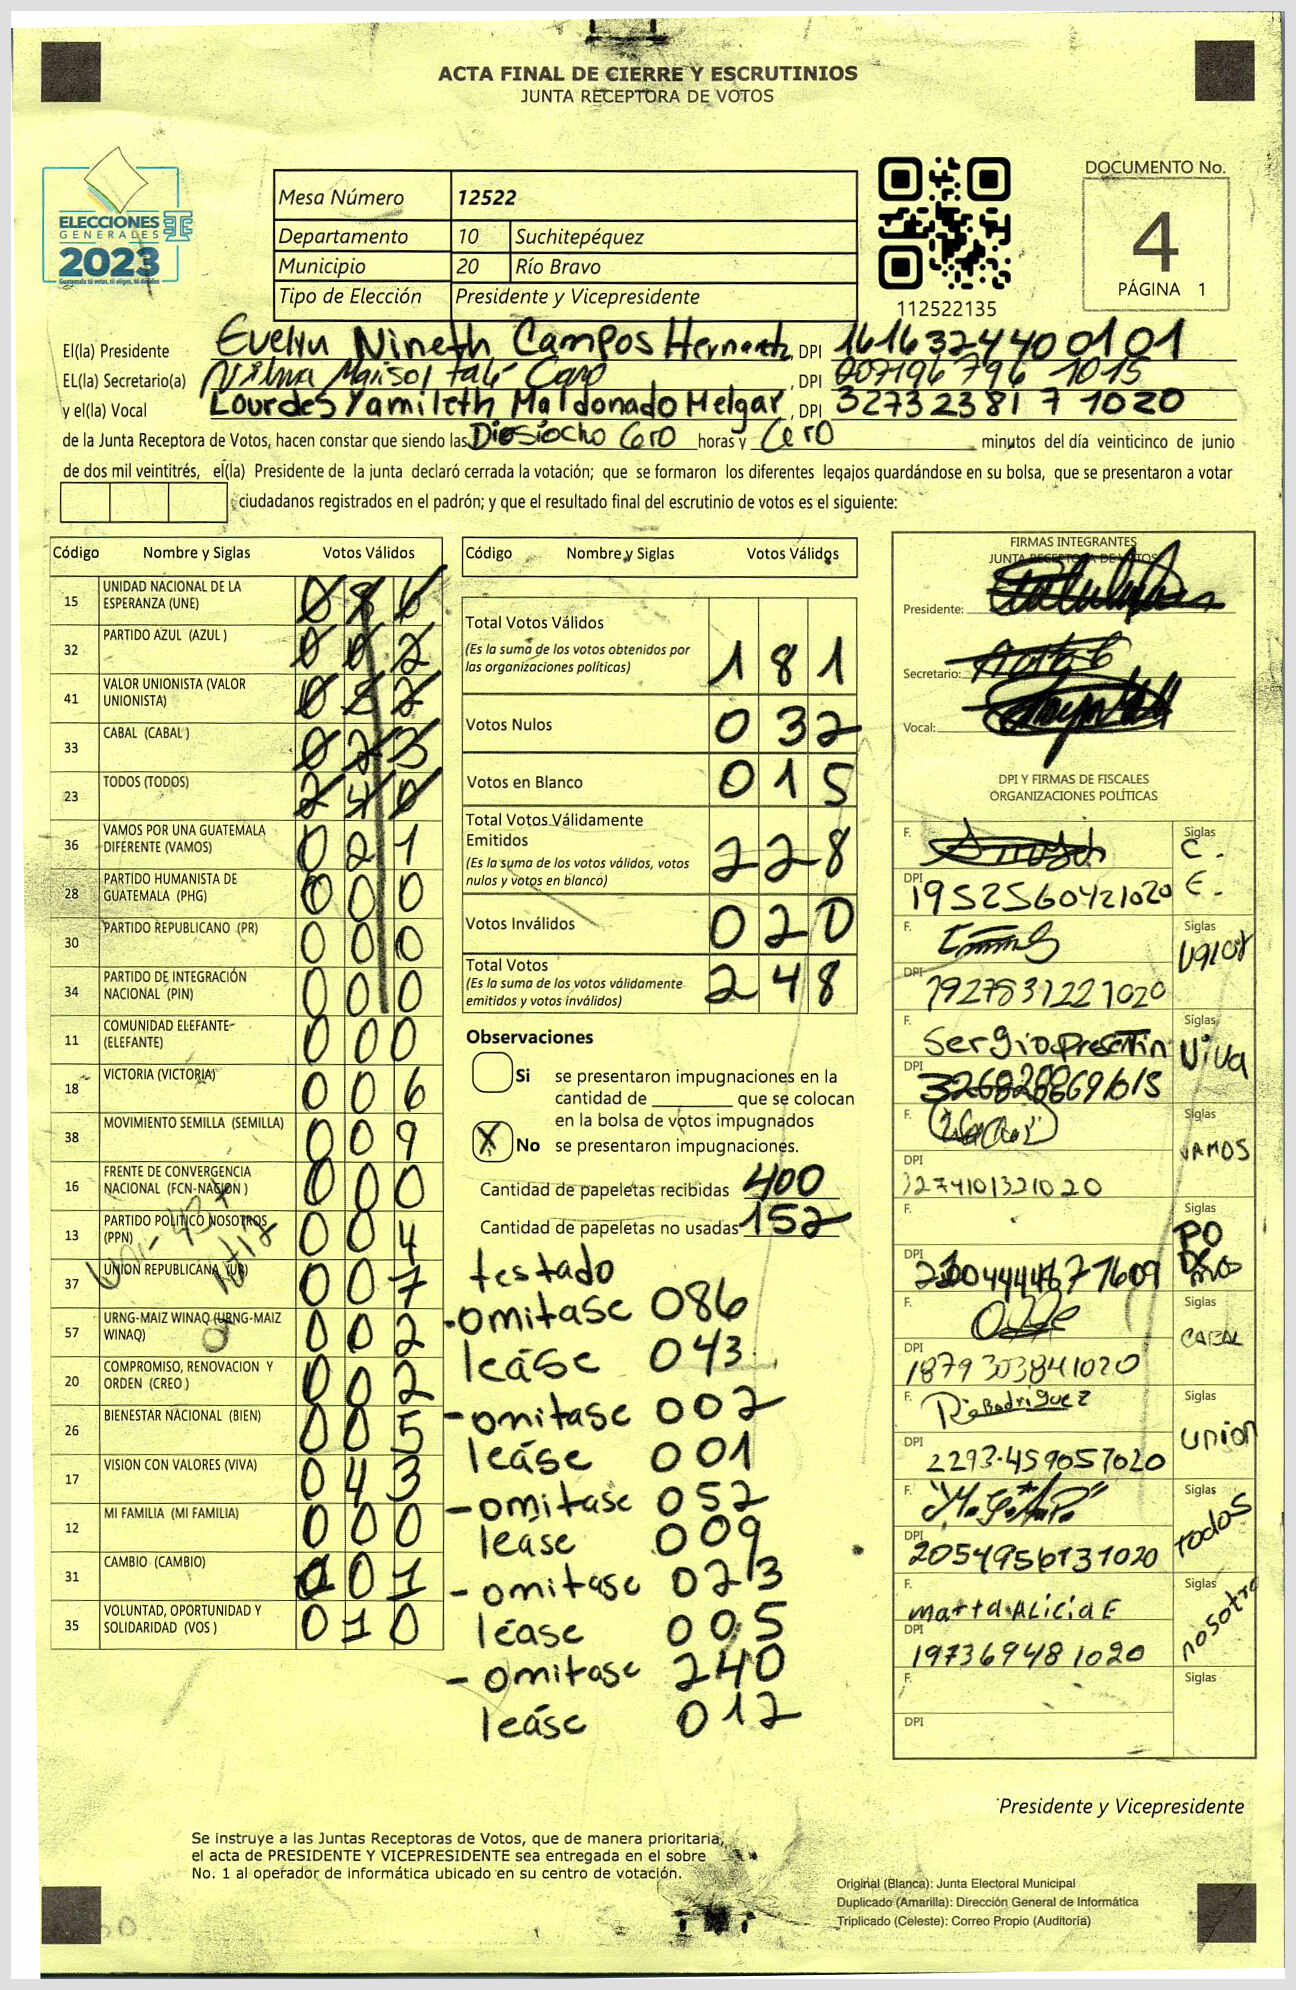 ACTA FINAL DE CIERRE Y ESCRUTINIOS
JUNTA RECEPTORA DE VOTOS
ELECCIONES
GENERALES
2023
Mesa Número 12522
Departamento 10 Suchitepéquez
Municipio 20 Río Bravo
Tipo de Elección Presidente y Vicepresidente
112522135
DOCUMENTO No.
4
PÁGINA 1
El(la) Presidente Evelyn Nineth Campos Hernandz, DPI 1616324400101
EL(la) Secretario(a) Marisol, DPI 007196796 1015
y el(la) Vocal Lourdes Yamileth Maldonado Melgar, DPI 3273238171020
de la Junta Receptora de Votos, hacen constar que siendo las Diesiocho Cero horas y Cero minutos del día veinticinco de junio
de dos mil veintitrés, el(la) Presidente de la junta declaró cerrada la votación; que se formaron los diferentes legajos guardándose en su bolsa, que se presentaron a votar
ciudadanos registrados en el padrón; y que el resultado final del escrutinio de votos es el siguiente:
Código Nombre y Siglas Votos Válidos
15 UNIDAD NACIONAL DE LA ESPERANZA (UNE) 086
32 PARTIDO AZUL (AZUL) 002
41 VALOR UNIONISTA (VALOR UNIONISTA) 052
33 CABAL (CABAL) 023
23 TODOS (TODOS) 240
36 VAMOS POR UNA GUATEMALA DIFERENTE (VAMOS) 021
28 PARTIDO HUMANISTA DE GUATEMALA (PHG) 000
30 PARTIDO REPUBLICANO (PR) 000
34 PARTIDO DE INTEGRACIÓN NACIONAL (PIN) 000
11 COMUNIDAD ELEFANTE (ELEFANTE) 000
18 VICTORIA (VICTORIA) 006
38 MOVIMIENTO SEMILLA (SEMILLA) 009
16 FRENTE DE CONVERGENCIA NACIONAL (FCN-NACION) 000
13 PARTIDO POLITICO NOSOTROS (PPN) 004
37 UNION REPUBLICANA (UR) 007
57 URNG-MAIZ WINAQ (URNG-MAIZ WINAQ) 002
20 COMPROMISO, RENOVACION Y ORDEN (CREO) 002
26 BIENESTAR NACIONAL (BIEN) 005
17 VISION CON VALORES (VIVA) 043
12 MI FAMILIA (MI FAMILIA) 000
31 CAMBIO (CAMBIO) 001
35 VOLUNTAD, OPORTUNIDAD Y SOLIDARIDAD (VOS) 010
Código Nombre y Siglas Votos Válidos
Total Votos Válidos 181
(Es la suma de los votos obtenidos por
las organizaciones políticas)
Votos Nulos 032
Votos en Blanco 015
Total Votos Válidamente
Emitidos 228
(Es la suma de los votos válidos, votos
nulos y votos en blanco)
Votos Inválidos 020
Total Votos 248
(Es la suma de los votos válidamente
emitidos y votos inválidos)
Observaciones
Si se presentaron impugnaciones en la
cantidad de ________ que se colocan
en la bolsa de votos impugnados
X No se presentaron impugnaciones.
Cantidad de papeletas recibidas 400
Cantidad de papeletas no usadas 152
testado
-omitase 086
leáse 043
-omitase 002
leáse 001
-omitase 052
lease 009
-omitase 023
léase 005
-omitase 240
leáse 012
FIRMAS INTEGRANTES
JUNTA RECEPTORA DE VOTOS
Presidente:
Secretario:
Vocal:
DPI Y FIRMAS DE FISCALES
ORGANIZACIONES POLÍTICAS
F. Siglas C.
DPI 1952560421020 E.
F. Siglas
DPI 1927831221020
F. Sergio Siglas Viva
DPI
F. Siglas VAMOS
DPI 1274101321020
F. Siglas PODEMOS
DPI
F. Siglas CABAL
DPI 1879303841020
F. Rodriguez Siglas union
DPI 2293-459051020
F. Siglas todos
DPI 2054956131020
F. marta ALiciA E Siglas nosotro
DPI 1973694481020
F. Siglas
DPI
Presidente y Vicepresidente
Se instruye a las Juntas Receptoras de Votos, que de manera prioritaria,
el acta de PRESIDENTE Y VICEPRESIDENTE sea entregada en el sobre
No. 1 al operador de informática ubicado en su centro de votación.
Original (Blanca): Junta Electoral Municipal
Duplicado (Amarilla): Dirección General de Informática
Triplicado (Celeste): Correo Propio (Auditoría)